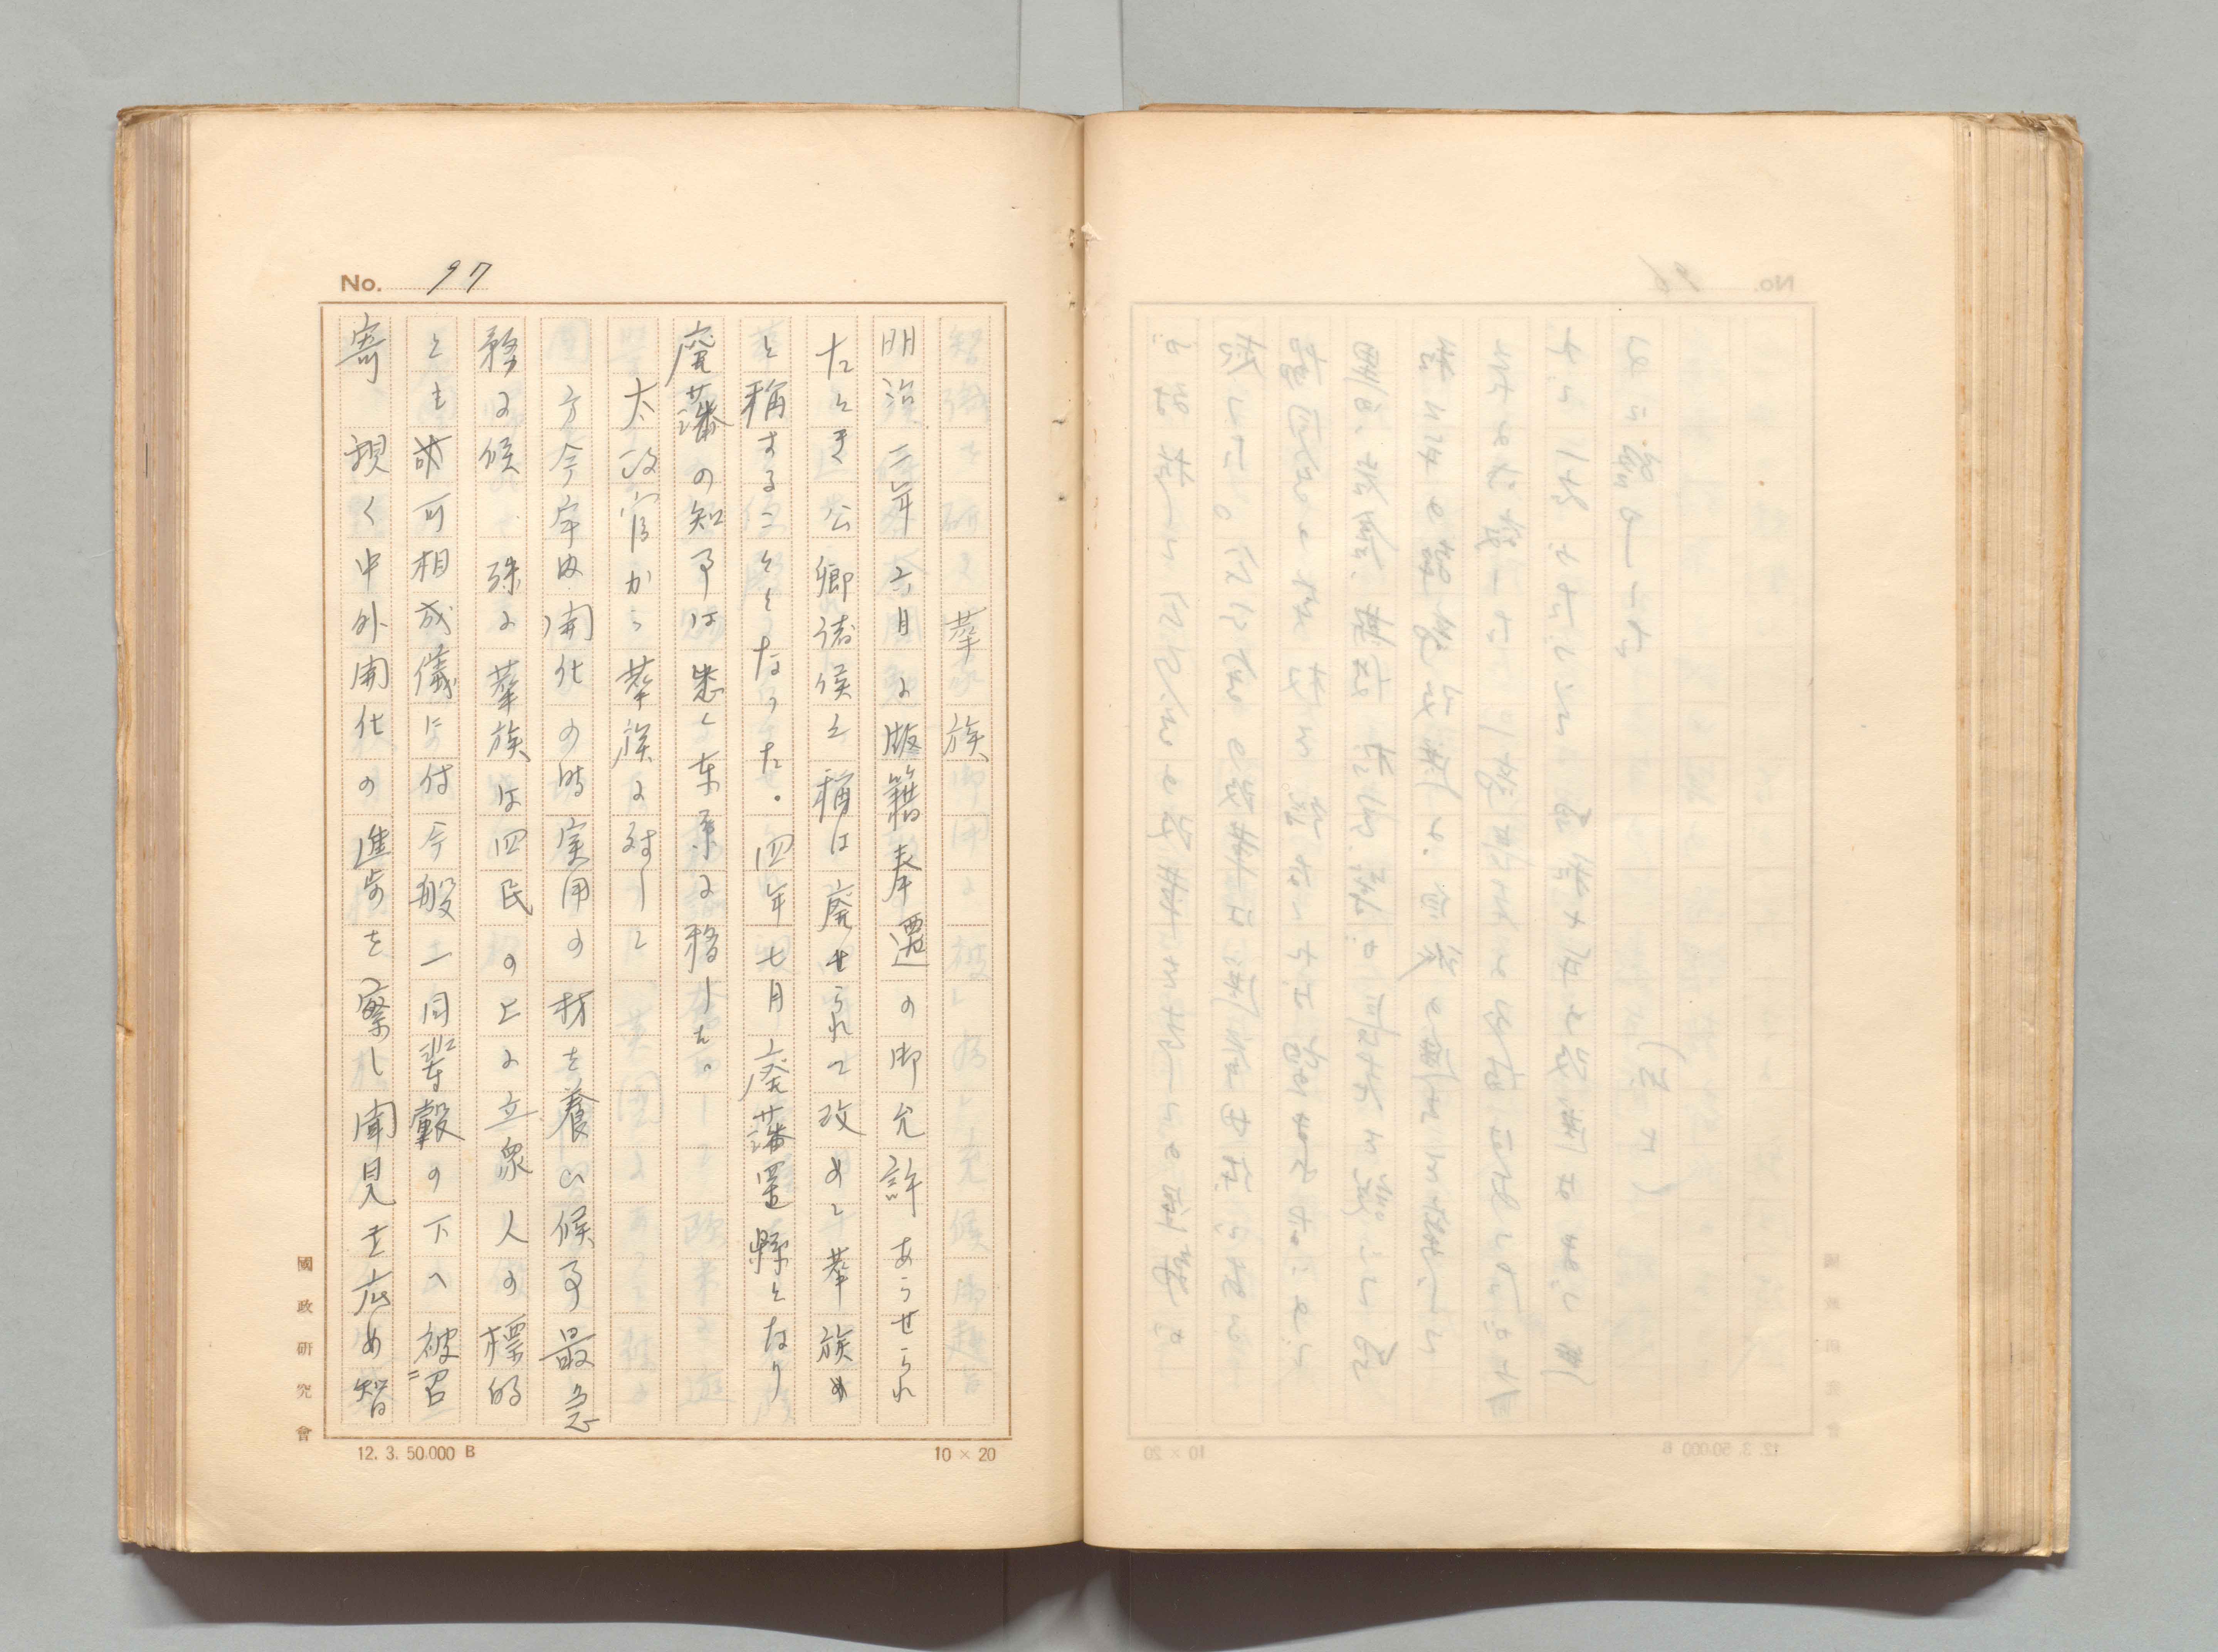 No. 97
華族
明治二年六月に版籍奉還の御允許あらせられ
たとき公卿諸侯と稱は廃せられて改めて華族
と稱することとなつた。四年七月廃藩置縣となり
廃藩の知事は悉く東京に移した。
太政官から華族に対して
方今宇内開化の時実用の材を養い候事最急
務に候 殊に華族は四民の上に立衆人の標的
とも可相成儀に付今般一同輦轂の下へ被召
寄 親く中外開化の進歩を察し聞見を広め智
國政研究會
12. 3. 50.000 B
10 × 20